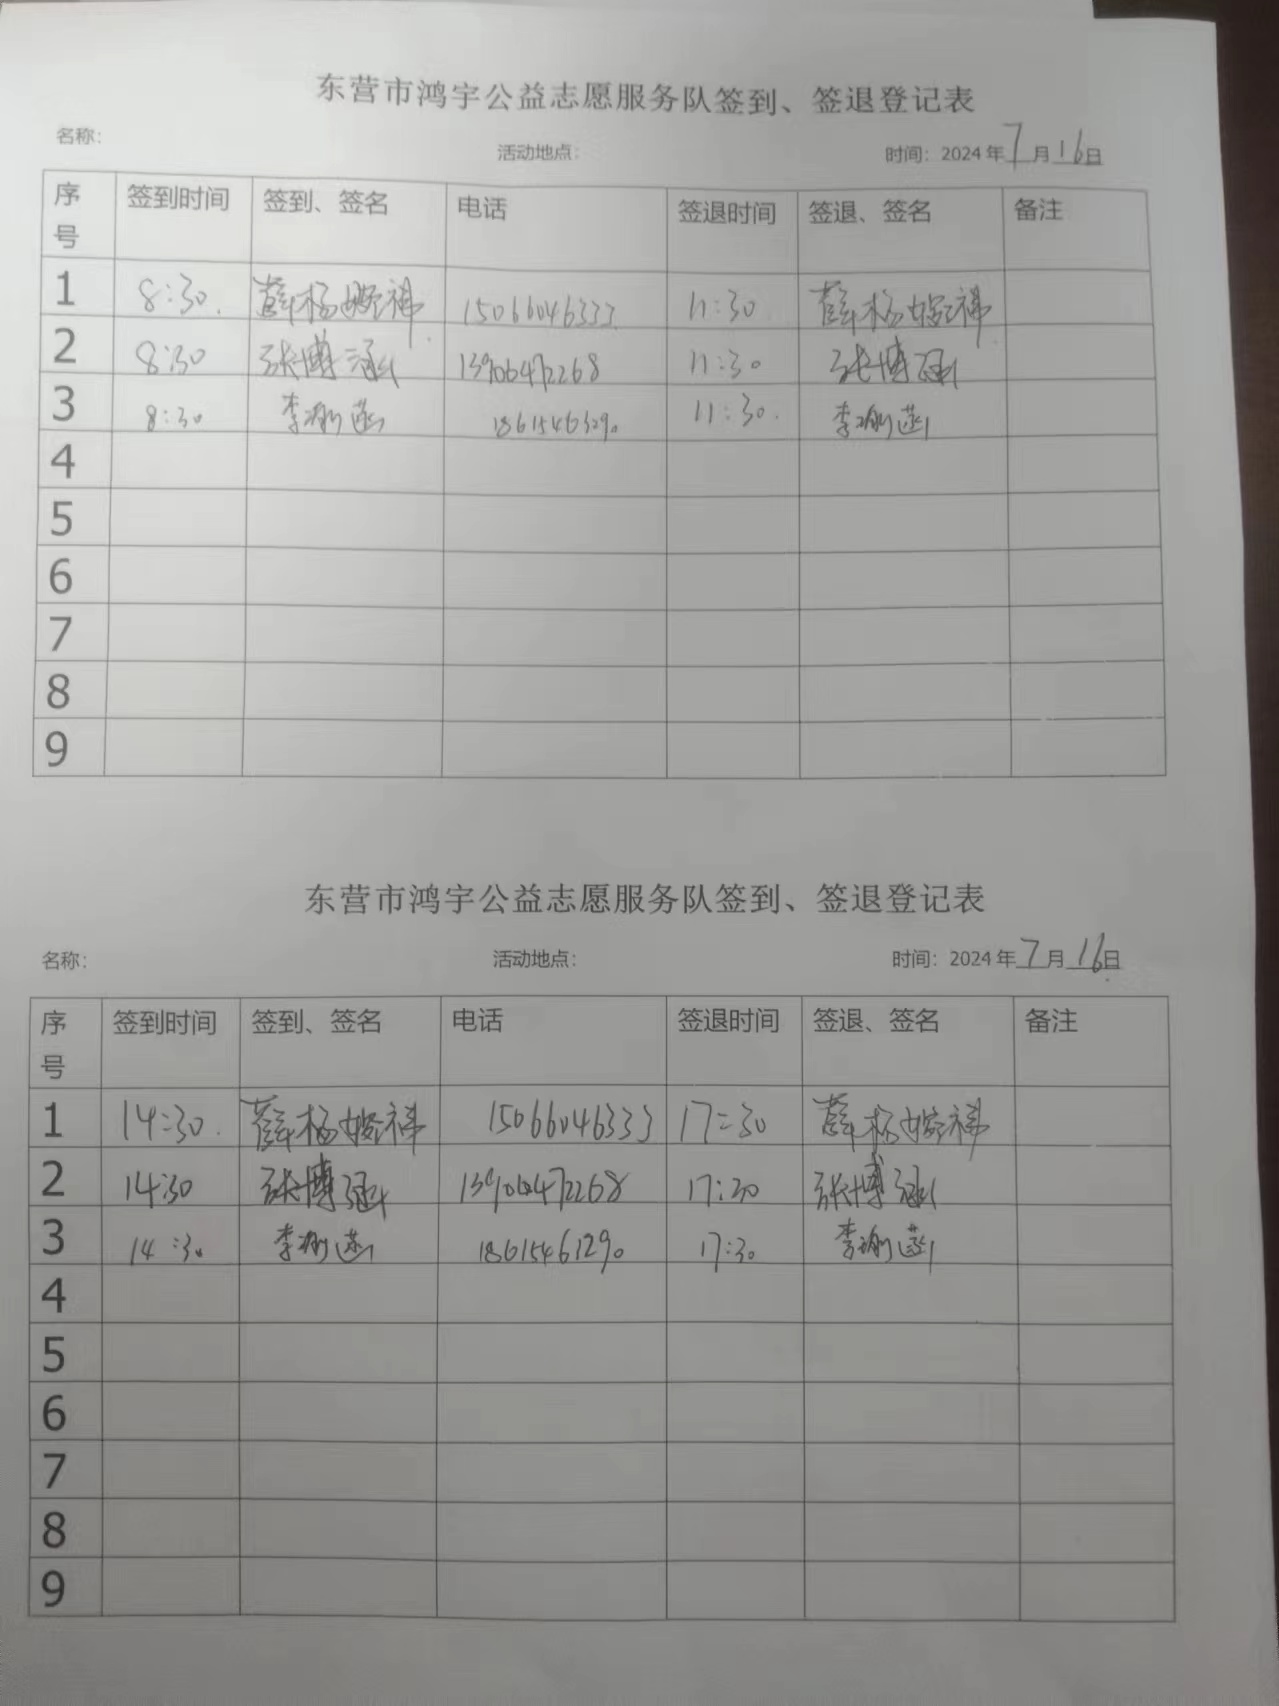 东营市鸿宇公益志愿服务队签到、签退登记表
名称： 活动地点： 时间：2024年7月16日
序号 签到时间 签到、签名 电话 签退时间 签退、签名 备注
1 8:30. 薛杨 15066046333 11:30 薛杨
2 8:30 张博涵 13906472268 11:30 张博涵
3 8:30 李 菡 11:30. 李 菡
4
5
6
7
8
9
东营市鸿宇公益志愿服务队签到、签退登记表
名称： 活动地点： 时间：2024年7月16日
序号 签到时间 签到、签名 电话 签退时间 签退、签名 备注
1 14:30. 薛杨 15066046333 17:30 薛杨
2 14:30 张博涵 13906472268 17:30 张博涵
3 14:30 李 菡 18615461290 17:30 李 菡
4
5
6
7
8
9